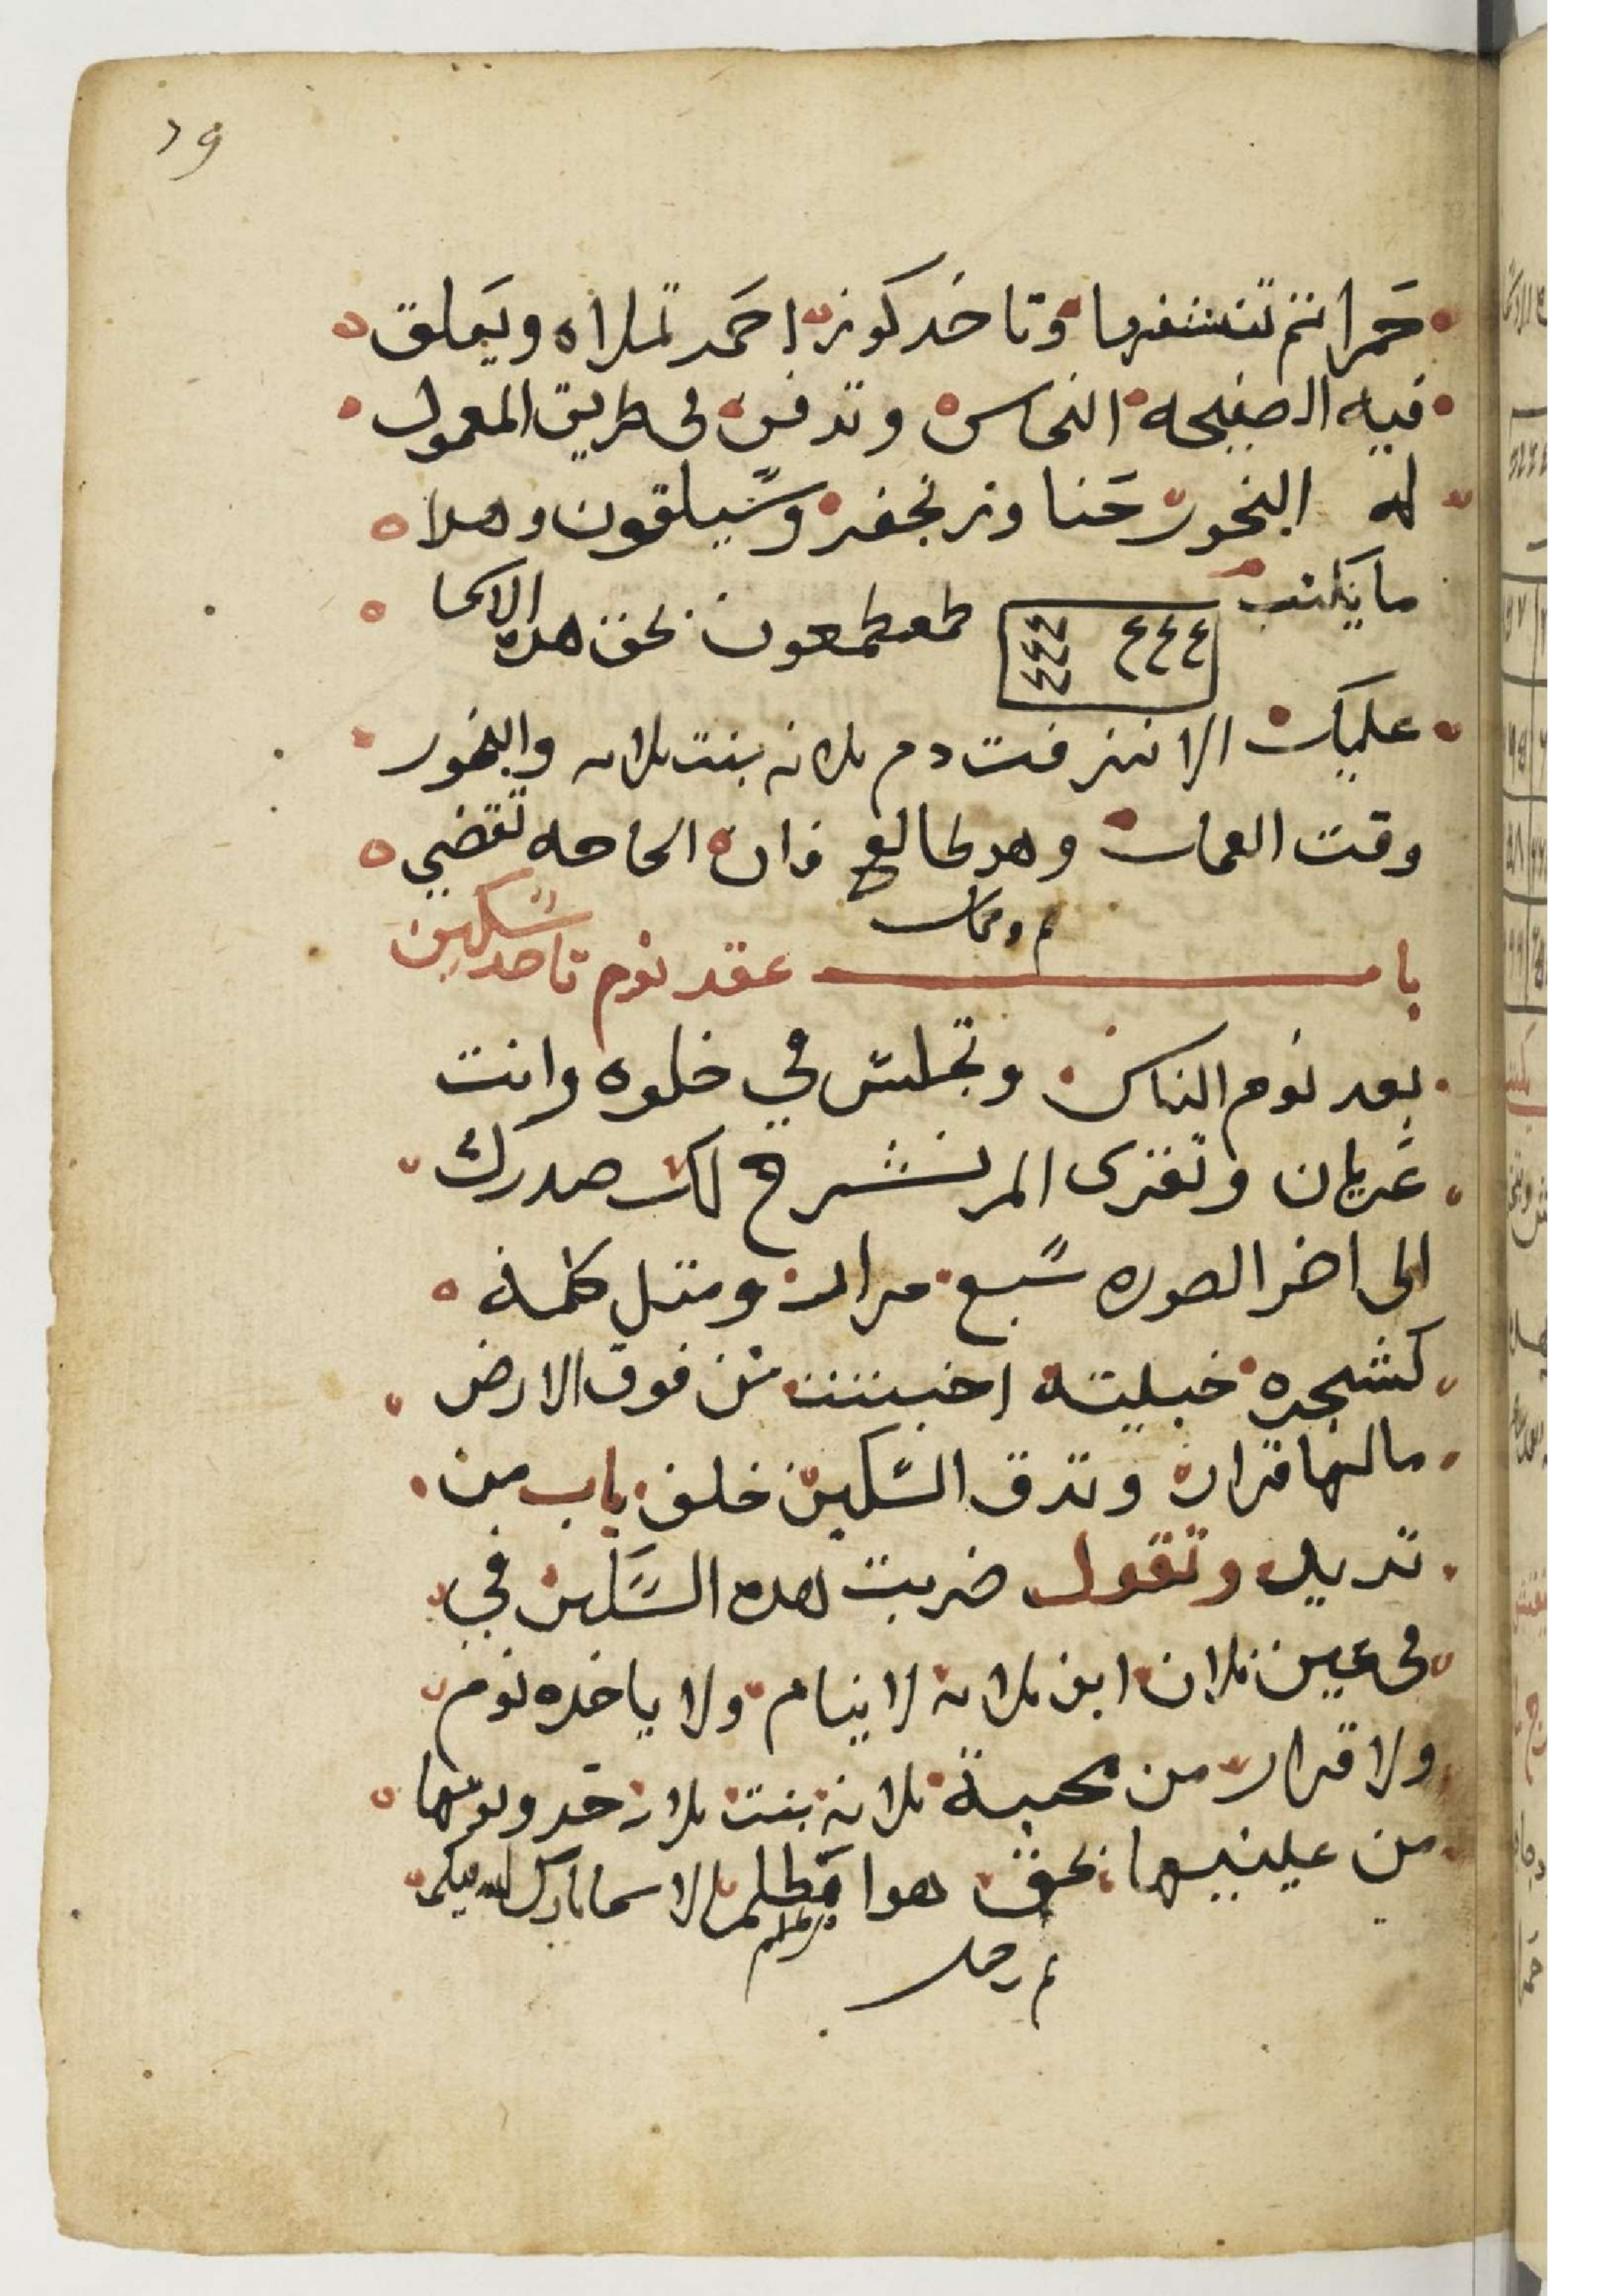 ٢٩
حمرا تم تنشفها وتاخد كوز احمر تملاه ويعلق
فيه الصفيحه النحاس وتدفن فى طريق المعمول
له البخور حنا وزنجفر وسيلقون وهدا
ما يكتب ٤٤٤ طمعطمعون بحق هده الاسما
عليك الا نزفت دم فلانه بنت فلانه والبخور
وقت العمل وهو طالع فان الحاجه تقضي
تم وكمل
باب عقد نوم تاخد سكين
بعد نوم الناس وتجلس في خلوه وانت
عريان وتقرى الم نشرح لك صدرك
الى اخر الصوره سبع مرات ومتل كلمة
كشجره خبيته اختتت من فوق الارض
مالها قرار وتدق السكين خلف باب من
تريد وتقول ضربت هده السكين في
فى عين فلان ابن فلانه لا ينام ولا ياخده نوم
ولا قرار من محبة فلانه بنت فلانه
من عينيها بحق هوا الاسما بارك الله فيكم
تم وكمل